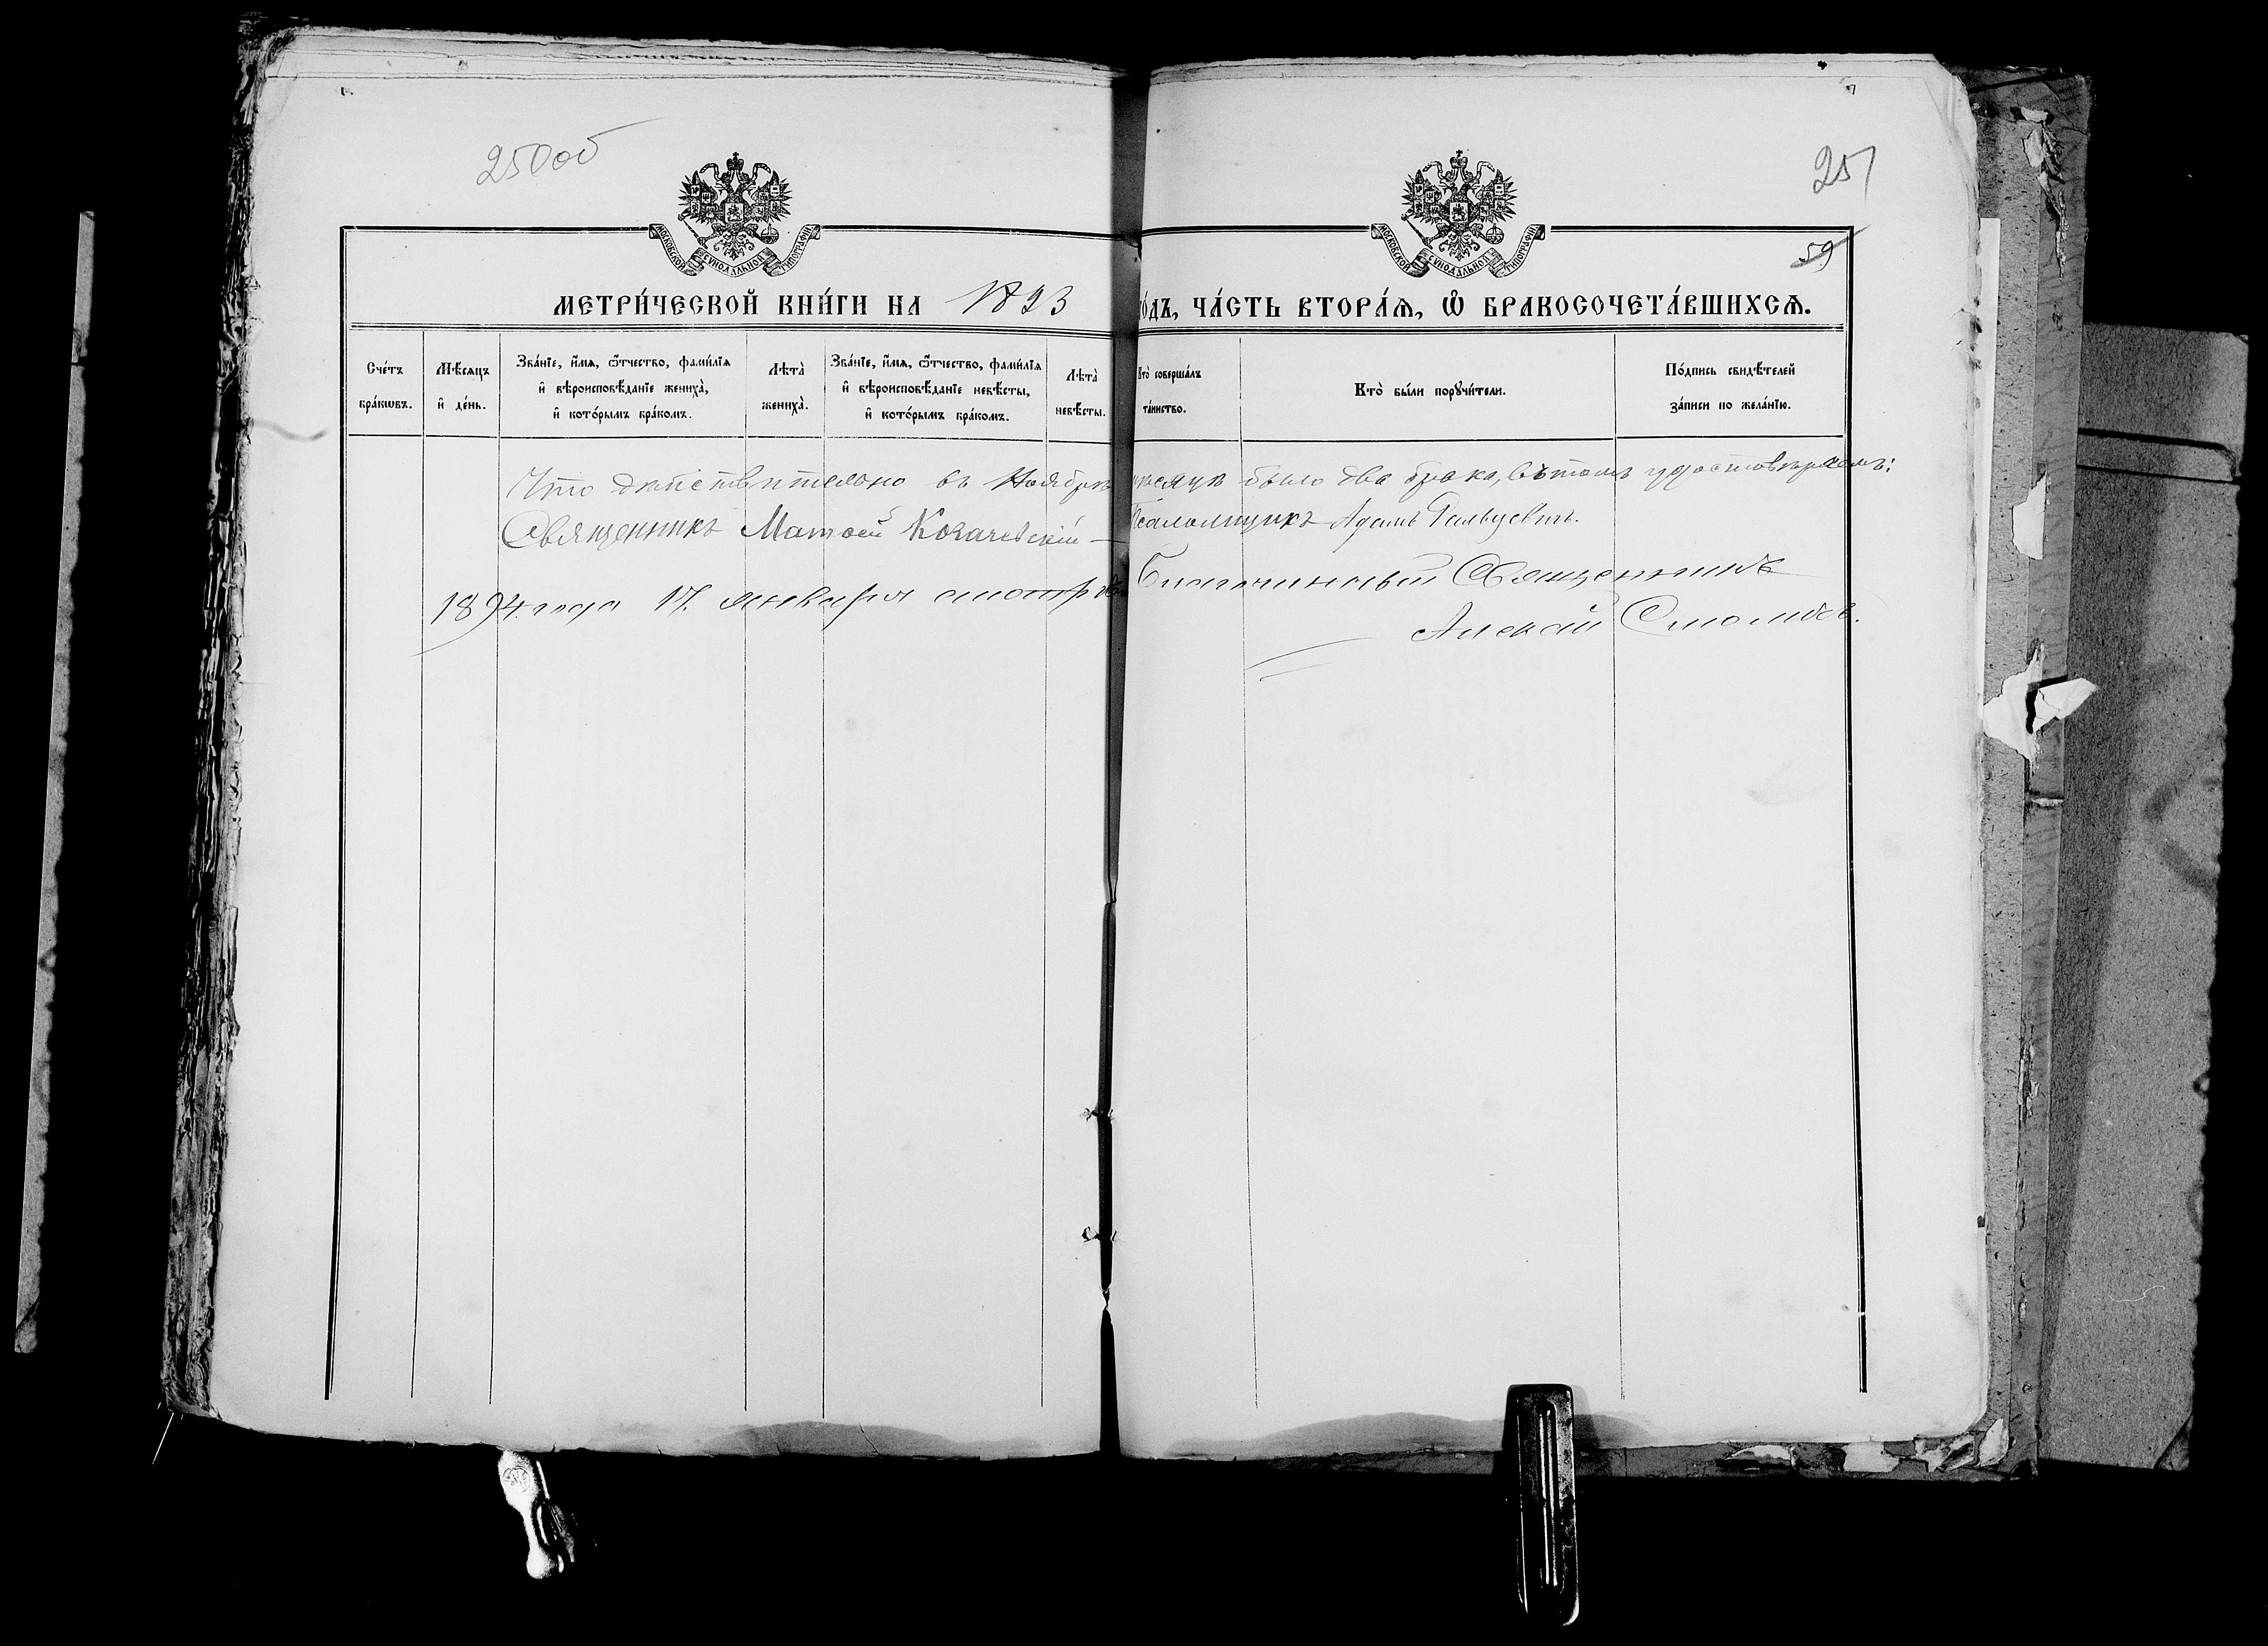 250 об
251
59
МОСКОВСКОЙ СѴНОДАЛЬНОЙ ТИПОГРАФІИ
МОСКОВСКОЙ СѴНОДАЛЬНОЙ ТИПОГРАФІИ
МЕТРИ́ЧЕСКОЙ КНИ́ГИ НА 1893 го́дъ, ЧА́СТЬ ВТОРА́Ѧ, Ѽ БРАКОСОЧЕТА́ВШИХСѦ.
Сче́тъ
бра́кѡвъ.
Мѣ́сяцъ
и҆ де́нь.
Зва́нїе, и҆́мя, ѻ҆́тчество, фами́лїя
и҆ вѣроисповѣ́данїе жениха̀,
и҆ кото́рымъ бра́комъ.
Лѣта̀
жениха̀.
Зва́нїе, и҆́мя, ѻ҆́тчество, фами́лїя
и҆ вѣроисповѣ́данїе невѣ́сты,
и҆ кото́рымъ бра́комъ.
Лѣта̀
невѣ́сты.
Кто̀ соверша́лъ
та́инство.
Кто̀ бы́ли порꙋчи́тели.
По́дпись свидѣ́телей
за́писи по жела́нїю.
Что дѣйствительно въ Ноябрѣ мѣсяцѣ было два брака, въ томъ удостовѣряемъ:
Священникъ Матѳей Псаломщикъ Адамъ
1894 года 17. января Благочинный Священникъ
Алексѣй